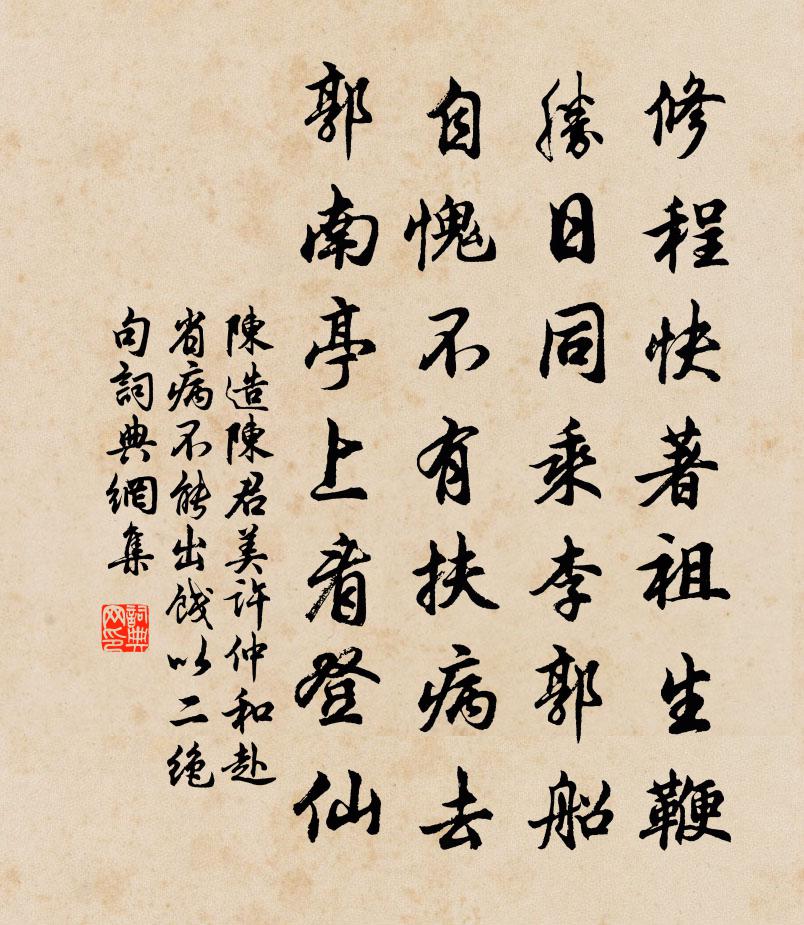 修程快著祖生鞭
勝日同乘李郭船
自愧不有扶病去
郭南亭上看登仙
陳造陳君美許仲和赴
省病不能出餞以二絶
句詞典網集
詞典網印